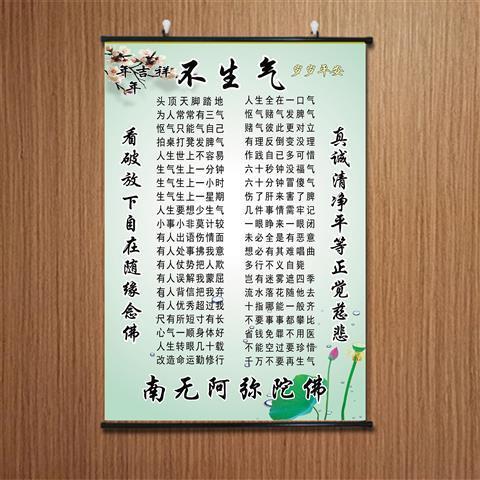 年年吉祥
不生气
岁岁平安
看破放下自在随缘念佛
头顶天脚踏地
为人常常有三气
怄气只能气自己
拍桌打凳发脾气
人生世上不容易
生气生上一分钟
生气生上一小时
生气生上一星期
人生要想少生气
小事小非莫计较
有人出语伤情面
有人处事拂我意
有人仗势把人欺
有人误解我屈我
有人背信把我弃
有人优秀超过我
尺有所短寸有长
心气一顺身体好
人生转眼几十
改造命运勤修行
人生全在一口气
怄气赌气发脾气
赌气彼此更对立
有理反倒变没理
作践自己多可惜
六十秒钟没福气
六十分钟冒傻气
伤了肝来害了脾
几件事情需牢记
一眼睁一眼闭
未必全有恶意
想必是其
多行不义难自毙
岂有迷雾遮四季
流水落花随他去
十指哪能一般齐
不要事事都攀比
省钱免不用医
不能空过惜
千万不要再生气
真诚清净平等正觉慈悲
南无阿弥陀佛